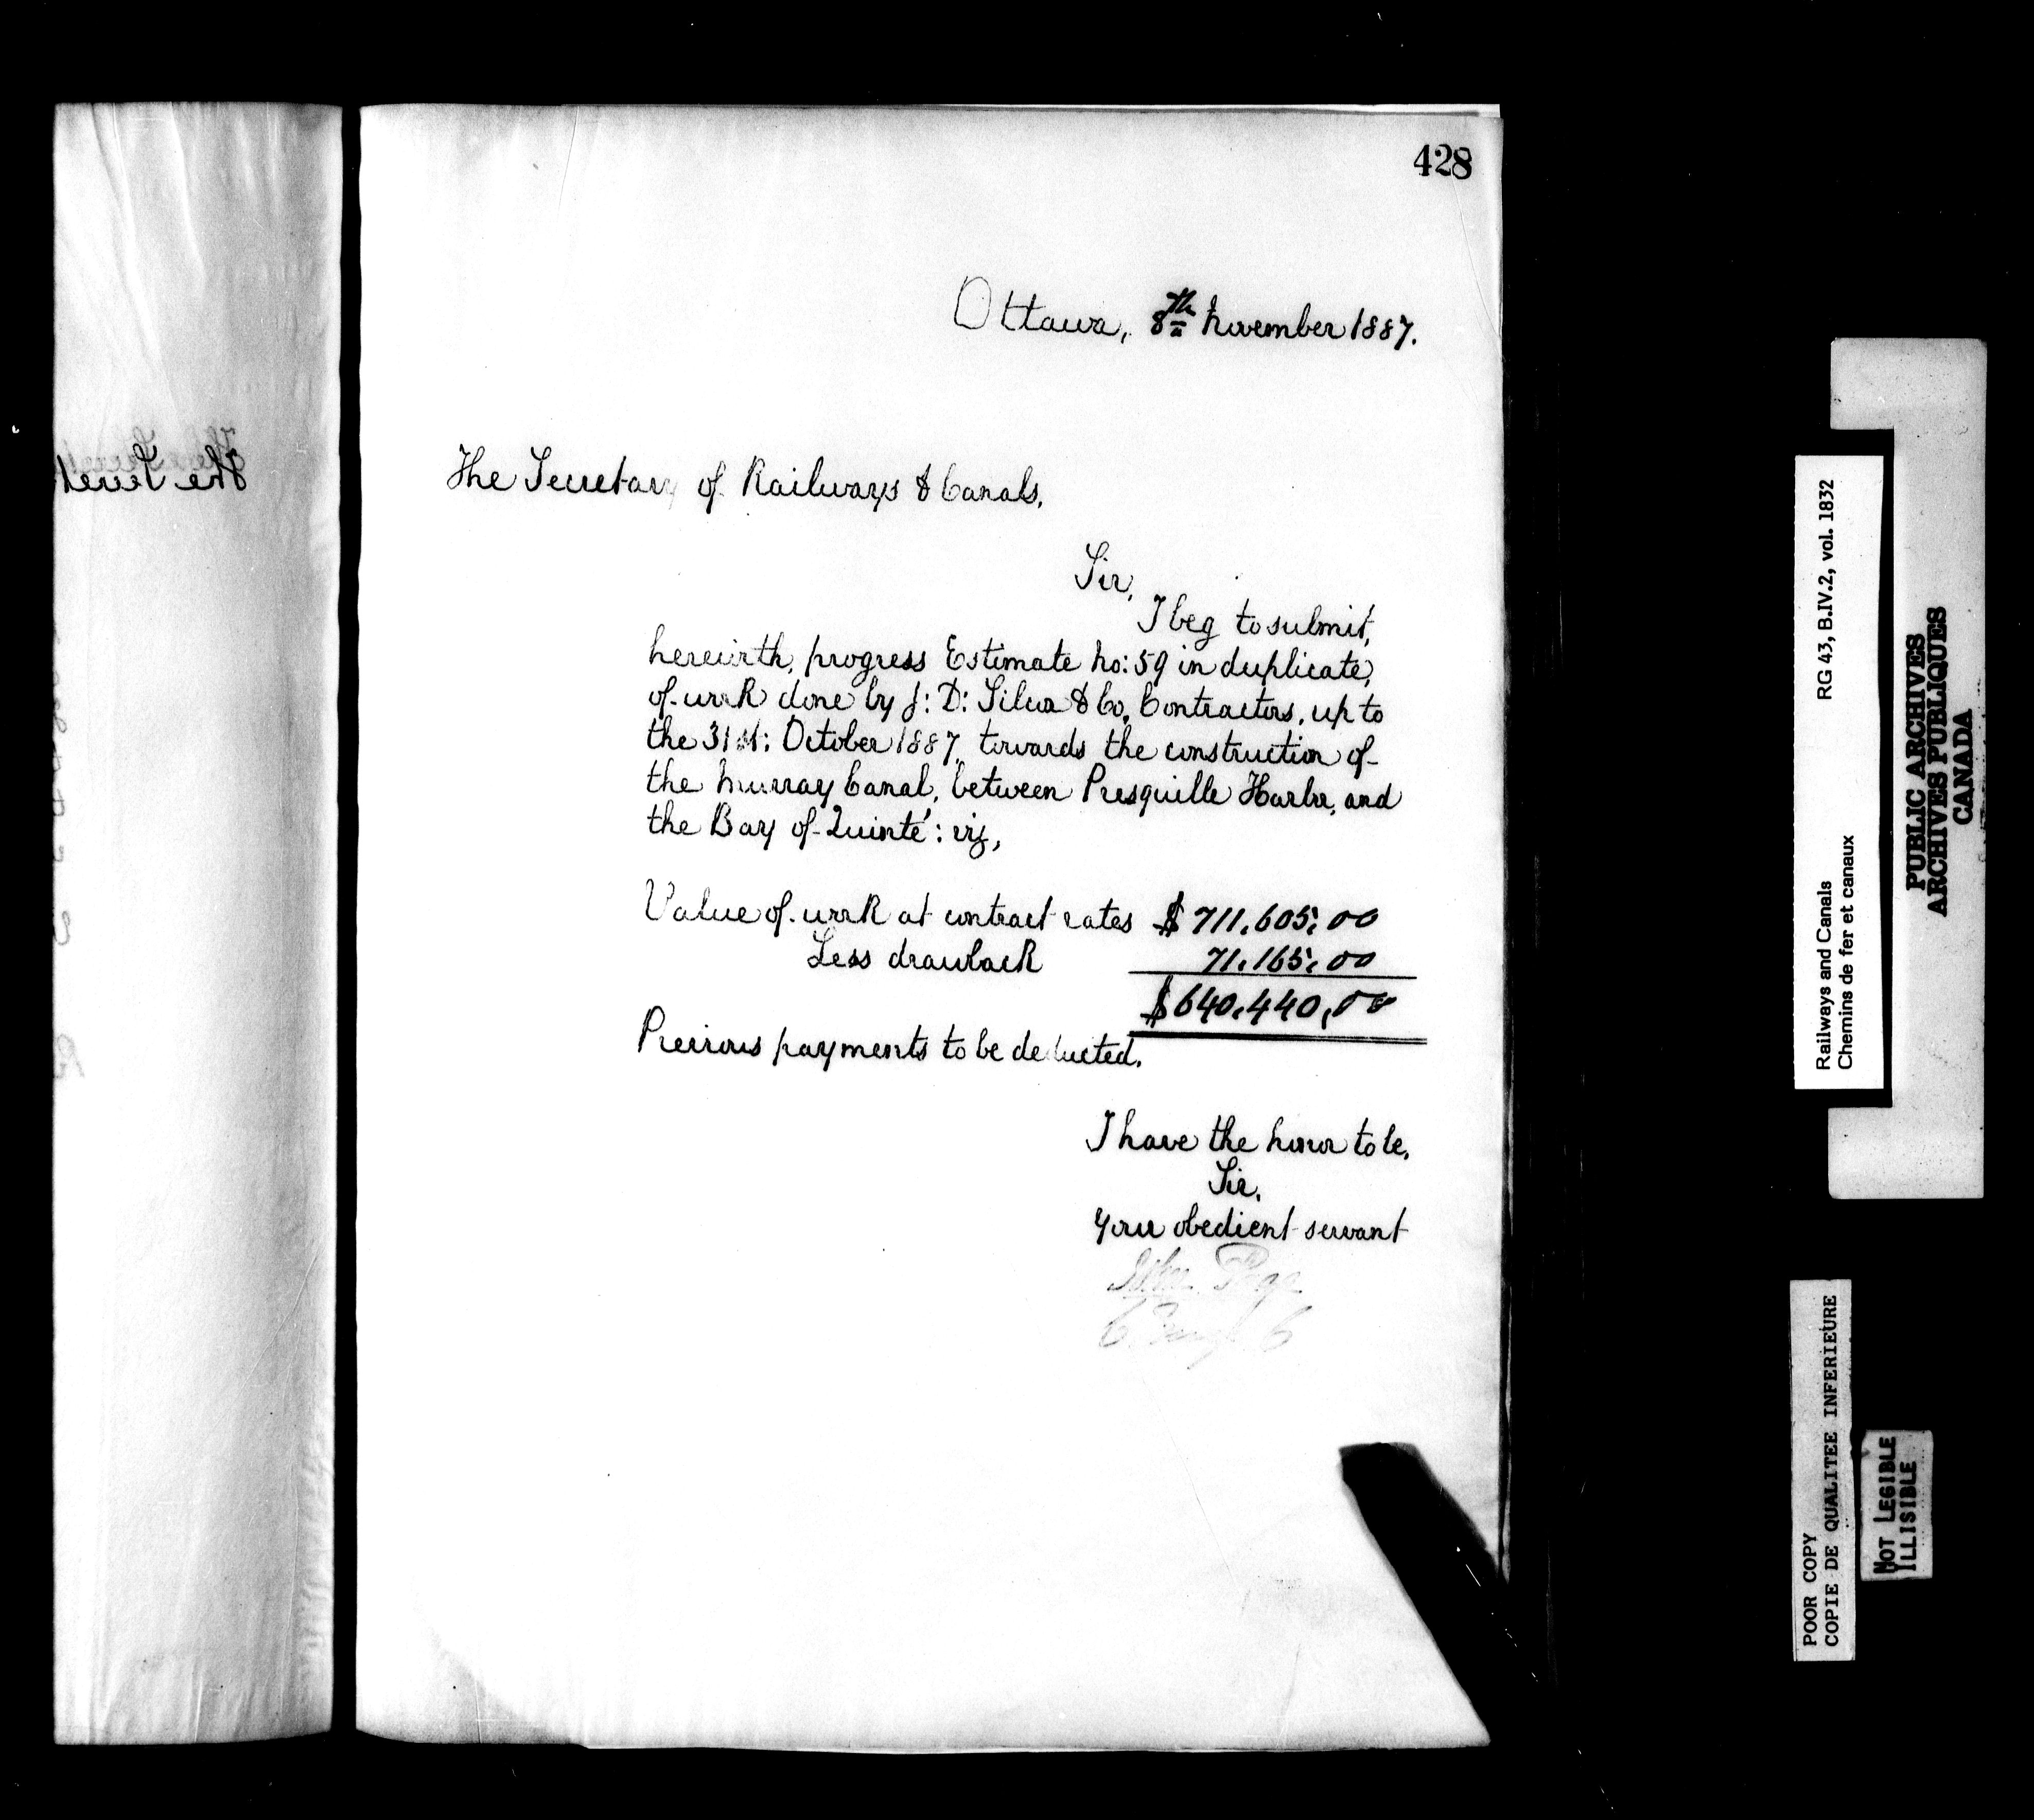 428
Ottawa, 8th November 1887.
The Secretary of Railways & Canals,
Sir,
I beg to submit,
herewith, progress Estimate No: 59 in duplicate,
of work done by J: D: Silcox & Co, Contractors, up to
the 31st: October 1887, towards the construction of
the Murray Canal, between Presquille Harbor, and
the Bay of Quinté: viz,
Value of work at contract rates $ 711,605,00
Less drawback 71,165,00
$640,440,00
Previous payments to be deducted.
I have the honor to be,
Sir,
Your obedient servant
John Page
RG 43, B.IV.2, vol. 1832
Railways and Canals
Chemins de fer et canaux
PUBLIC ARCHIVES
ARCHIVES PUBLIQUES
CANADA
POOR COPY
COPIE DE QUALITEE INFERIEURE
NOT LEGIBLE
ILLISIBLE